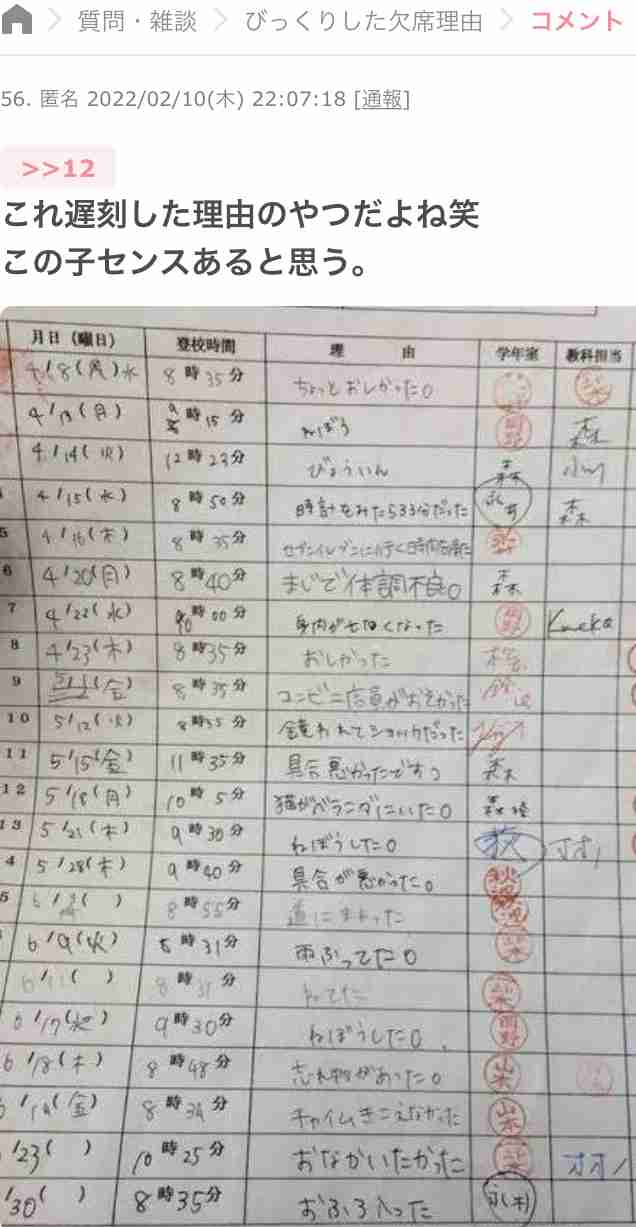 質問・雑談 びっくりした欠席理由 コメント
56. 匿名 2022/02/10(木) 22:07:18 [通報]
>>12
これ遅刻した理由のやつだよね笑
この子センスあると思う。
月日（曜日） 登校時間 理由 学年室 教科担当
4/8( )水 8時35分 ちょっとおしかった。
4/13(月) 9時15分 ねぼう 森
4/14(火) 12時23分 びょういん 森 小川
4/15(水) 8時50分 時計をみたら33分だった 森
5 4/16(木) 8時35分 セブンイレブンに行く
6 4/20(月) 8時40分 まじで体調不良。 森
7 4/22(水) 時00分 身内が亡くなった
8 4/23(木) 8時35分 おしかった
9 (金) 8時35分 コンビニ店員がおそかった
10 5/12(火) 8時55分 鏡われてショックだった
11 5/15(金) 11時35分 具合悪かったです 森
12 5/18(月) 10時5分 猫がベランダにいた。 森
13 5/21(木) 9時30分 ねぼうした。
4 5/28(木) 9時40分 具合が悪かった。
5 6/ ( ) 8時55分 道にまよった
6/9(火) 8時31分 雨ふってた。
6/11( ) 8時31分 ねてた
/17(水) 9時30分 ねぼうした。
6/18(木) 8時48分 忘れ物があった。 山本
(金) 8時34分 チャイムきこえなかった 山本
/23( ) 10時25分 おなかいたかった
/30( ) 8時35分 おふろ入った